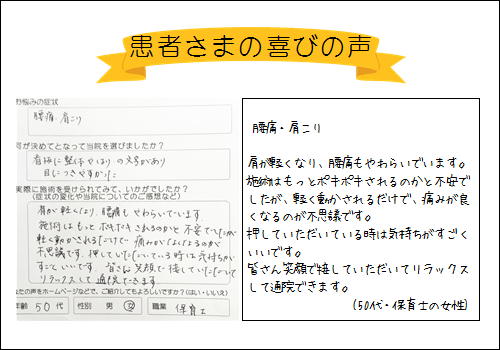 患者さまの喜びの声
お悩みの症状
腰痛・肩こり
何が決めてとなって当院を選びましたか?
看板に整体やはりの文字があり
目につきやすかった
実際に施術を受けられてみて、いかがでしたか?
(症状の変化や当院についてのご感想など)
肩が軽くなり、腰痛もやわらいでいます
施術はもっとポキポキされるのかと不安でしたが
軽く動かされるだけで痛みがなくなるのが
不思議です。押していただいている時は気持ちが
すごくいいです 皆さん笑顔で接していただいて
リラックスして通院できます
たの声をホームページなどで、ご紹介してもよろしいですか?(はい・いいえ)
年齢 50代 性別 男 女 職業 保育士
腰痛・肩こり
肩が軽くなり、腰痛もやわらいでいます。
施術はもっとポキポキされるのかと不安で
したが、軽く動かされるだけで、痛みが良
くなるのが不思議です。
押していただいている時は気持ちがすごく
いいです。
皆さん笑顔で接していただいてリラックス
して通院できます。
(50代・保育士の女性)